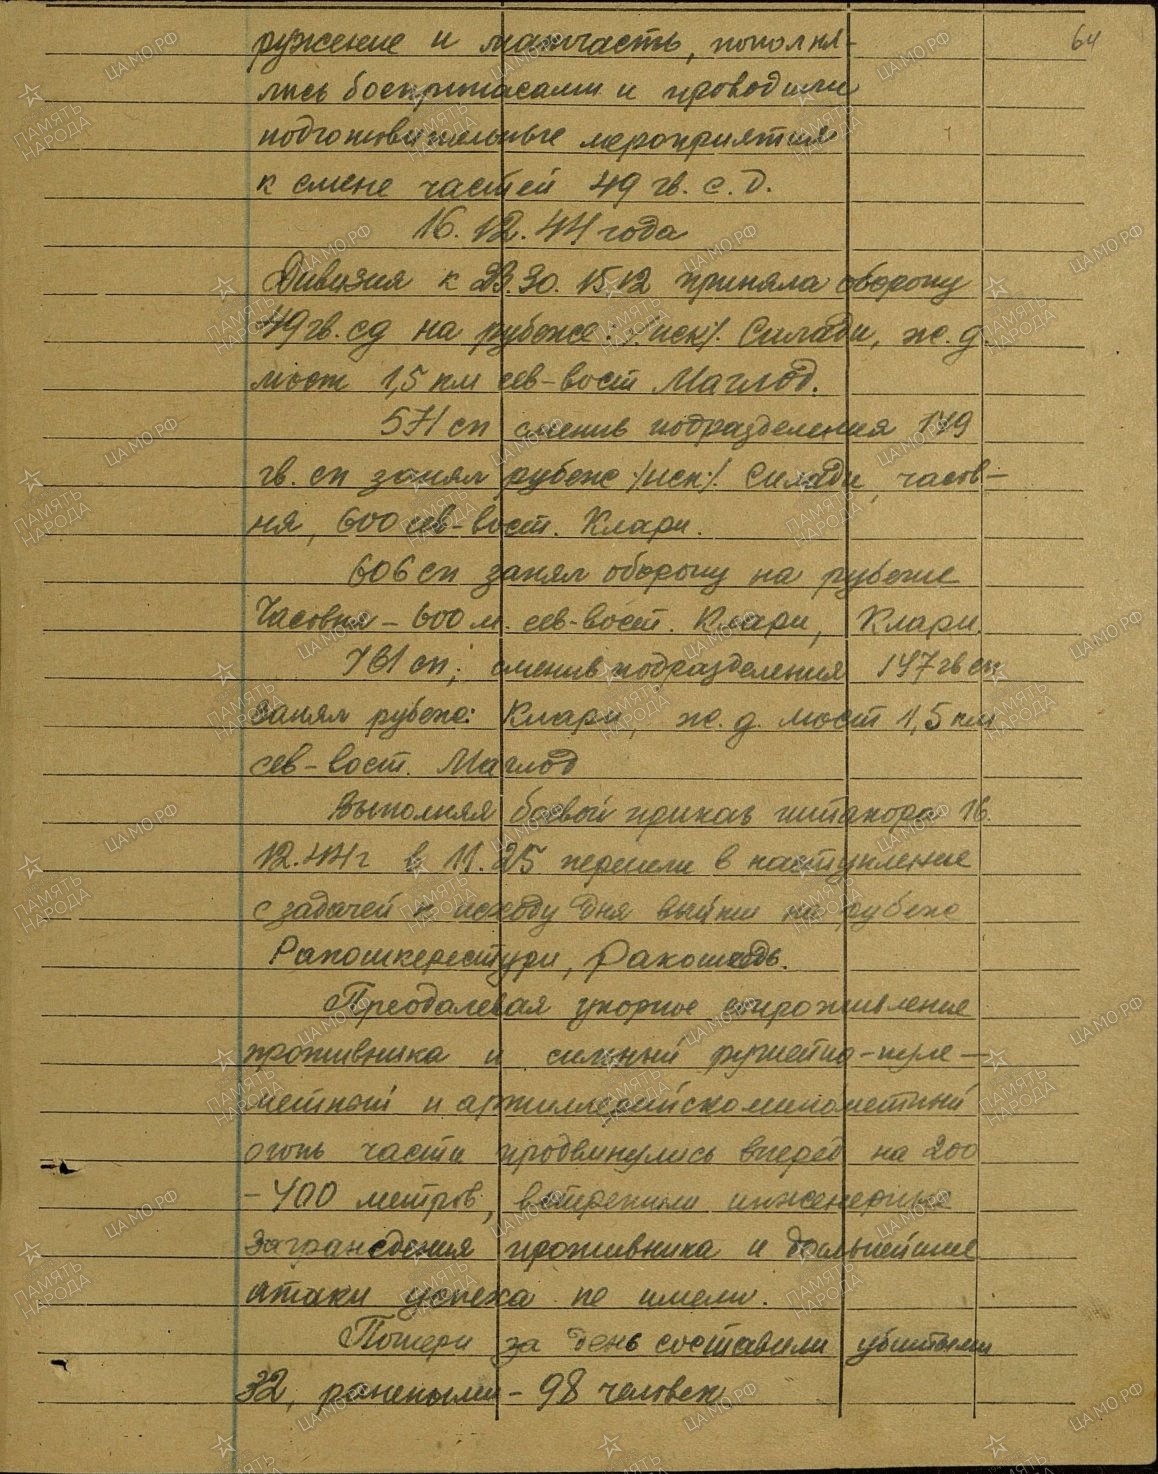 64
ружение и матчасть, пополня-
лись боеприпасами и проводили
подготовительные мероприятия
к смене частей 49 гв. с. д.
16. 12. 44 года
Дивизия к 23.30. 15.12 приняла оборону
49 гв. сд на рубеже: /иск/. Силади, ж. д.
мост 1,5 км сев-вост Маглод.
571 сп сменив подразделения 149
гв. сп занял рубеж /иск/. Силади, часов-
ня, 600 сев-вост. Клари.
606 сп занял оборону на рубеже
Часовня - 600 м. сев-вост. Клари, Клари.
761 сп, сменив подразделения 147 гв сп
занял рубеж: Клари, ж. д. мост 1,5 км
сев-вост. Маглод
Выполняя боевой приказ штакора 16.
12.44 г в 11.25 перешли в наступление
с задачей к исходу дня выйти на рубеж
Ракошкерестури, Ракошхедь.
Преодалевая упорное сопротивление
противника и сильный ружейно-пуле-
метный и артиллерийскоминометный
огонь части продвинулись вперед на 200
-400 метров, встретили инженерные
заграждения противника и дальнейшие
атаки успеха не имели.
Потери за день составили убитыми
32, ранеными - 98 человек